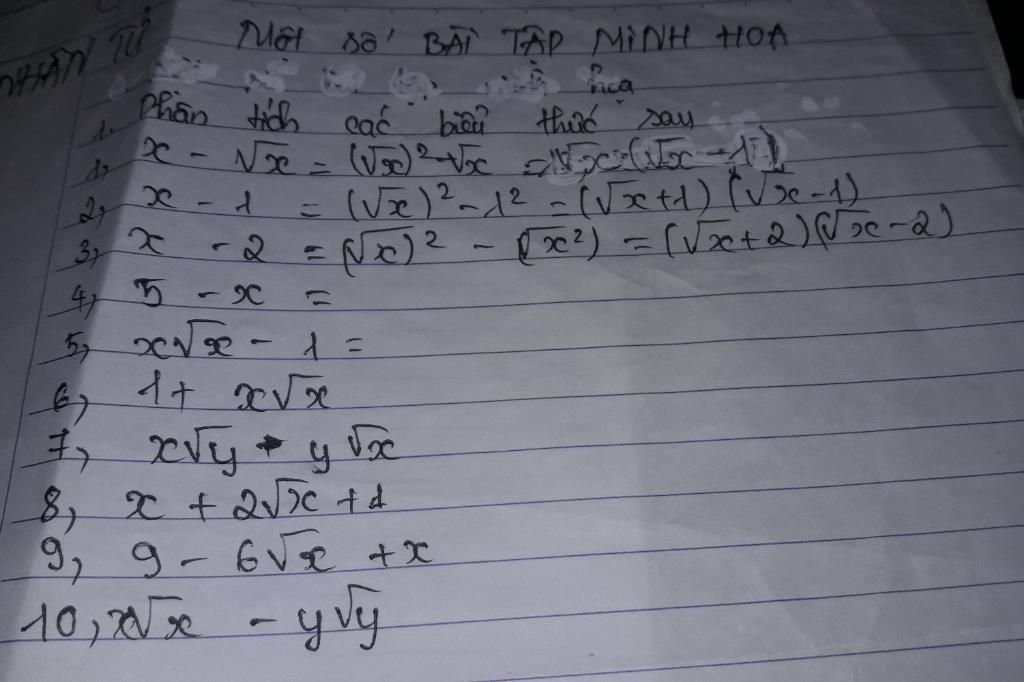 Một số BÀI TẬP MINH HOA
NHÂN TỬ
họa
1. Phân tích các biểu thức sau
1, x - √x = (√x)² - √x = √x (√x - 1)
2, x - 1 = (√x)² - 1² = (√x + 1) (√x - 1)
3, x - 2 = (√x)² - (√x²) = (√x + 2)(√x - 2)
4, 5 - x =
5, x√x - 1 =
6, 1 + x√x
7, x√y - y√x
8, x + 2√x + 1
9, 9 - 6√x + x
10, x√x - y√y